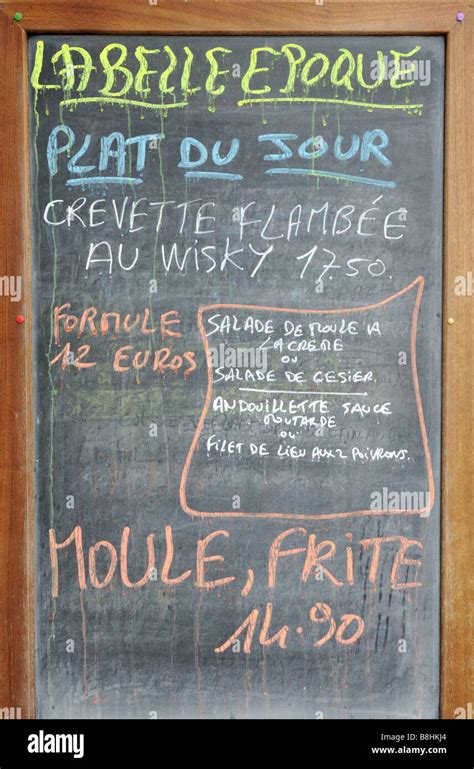 LA BELLE EPOQUE
PLAT DU JOUR
CREVETTE FLAMBÉE
AU WISKY 1750.
FORMULE
12 EUROS
SALADE DE MOULE A
LA CREME
OU
SALADE DE GESIER.
ANDOUILLETTE SAUCE
MOUTARDE
OU
FILET DE LIEU AUX 2 POIVRONS.
MOULE, FRITE
14.90
alamy
Image ID: B8HKJ4
www.alamy.com